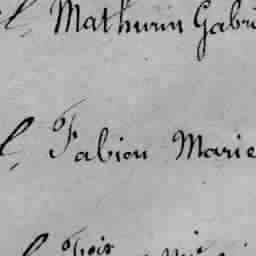 l, Mathurin Gabri
l, Fabien Marie